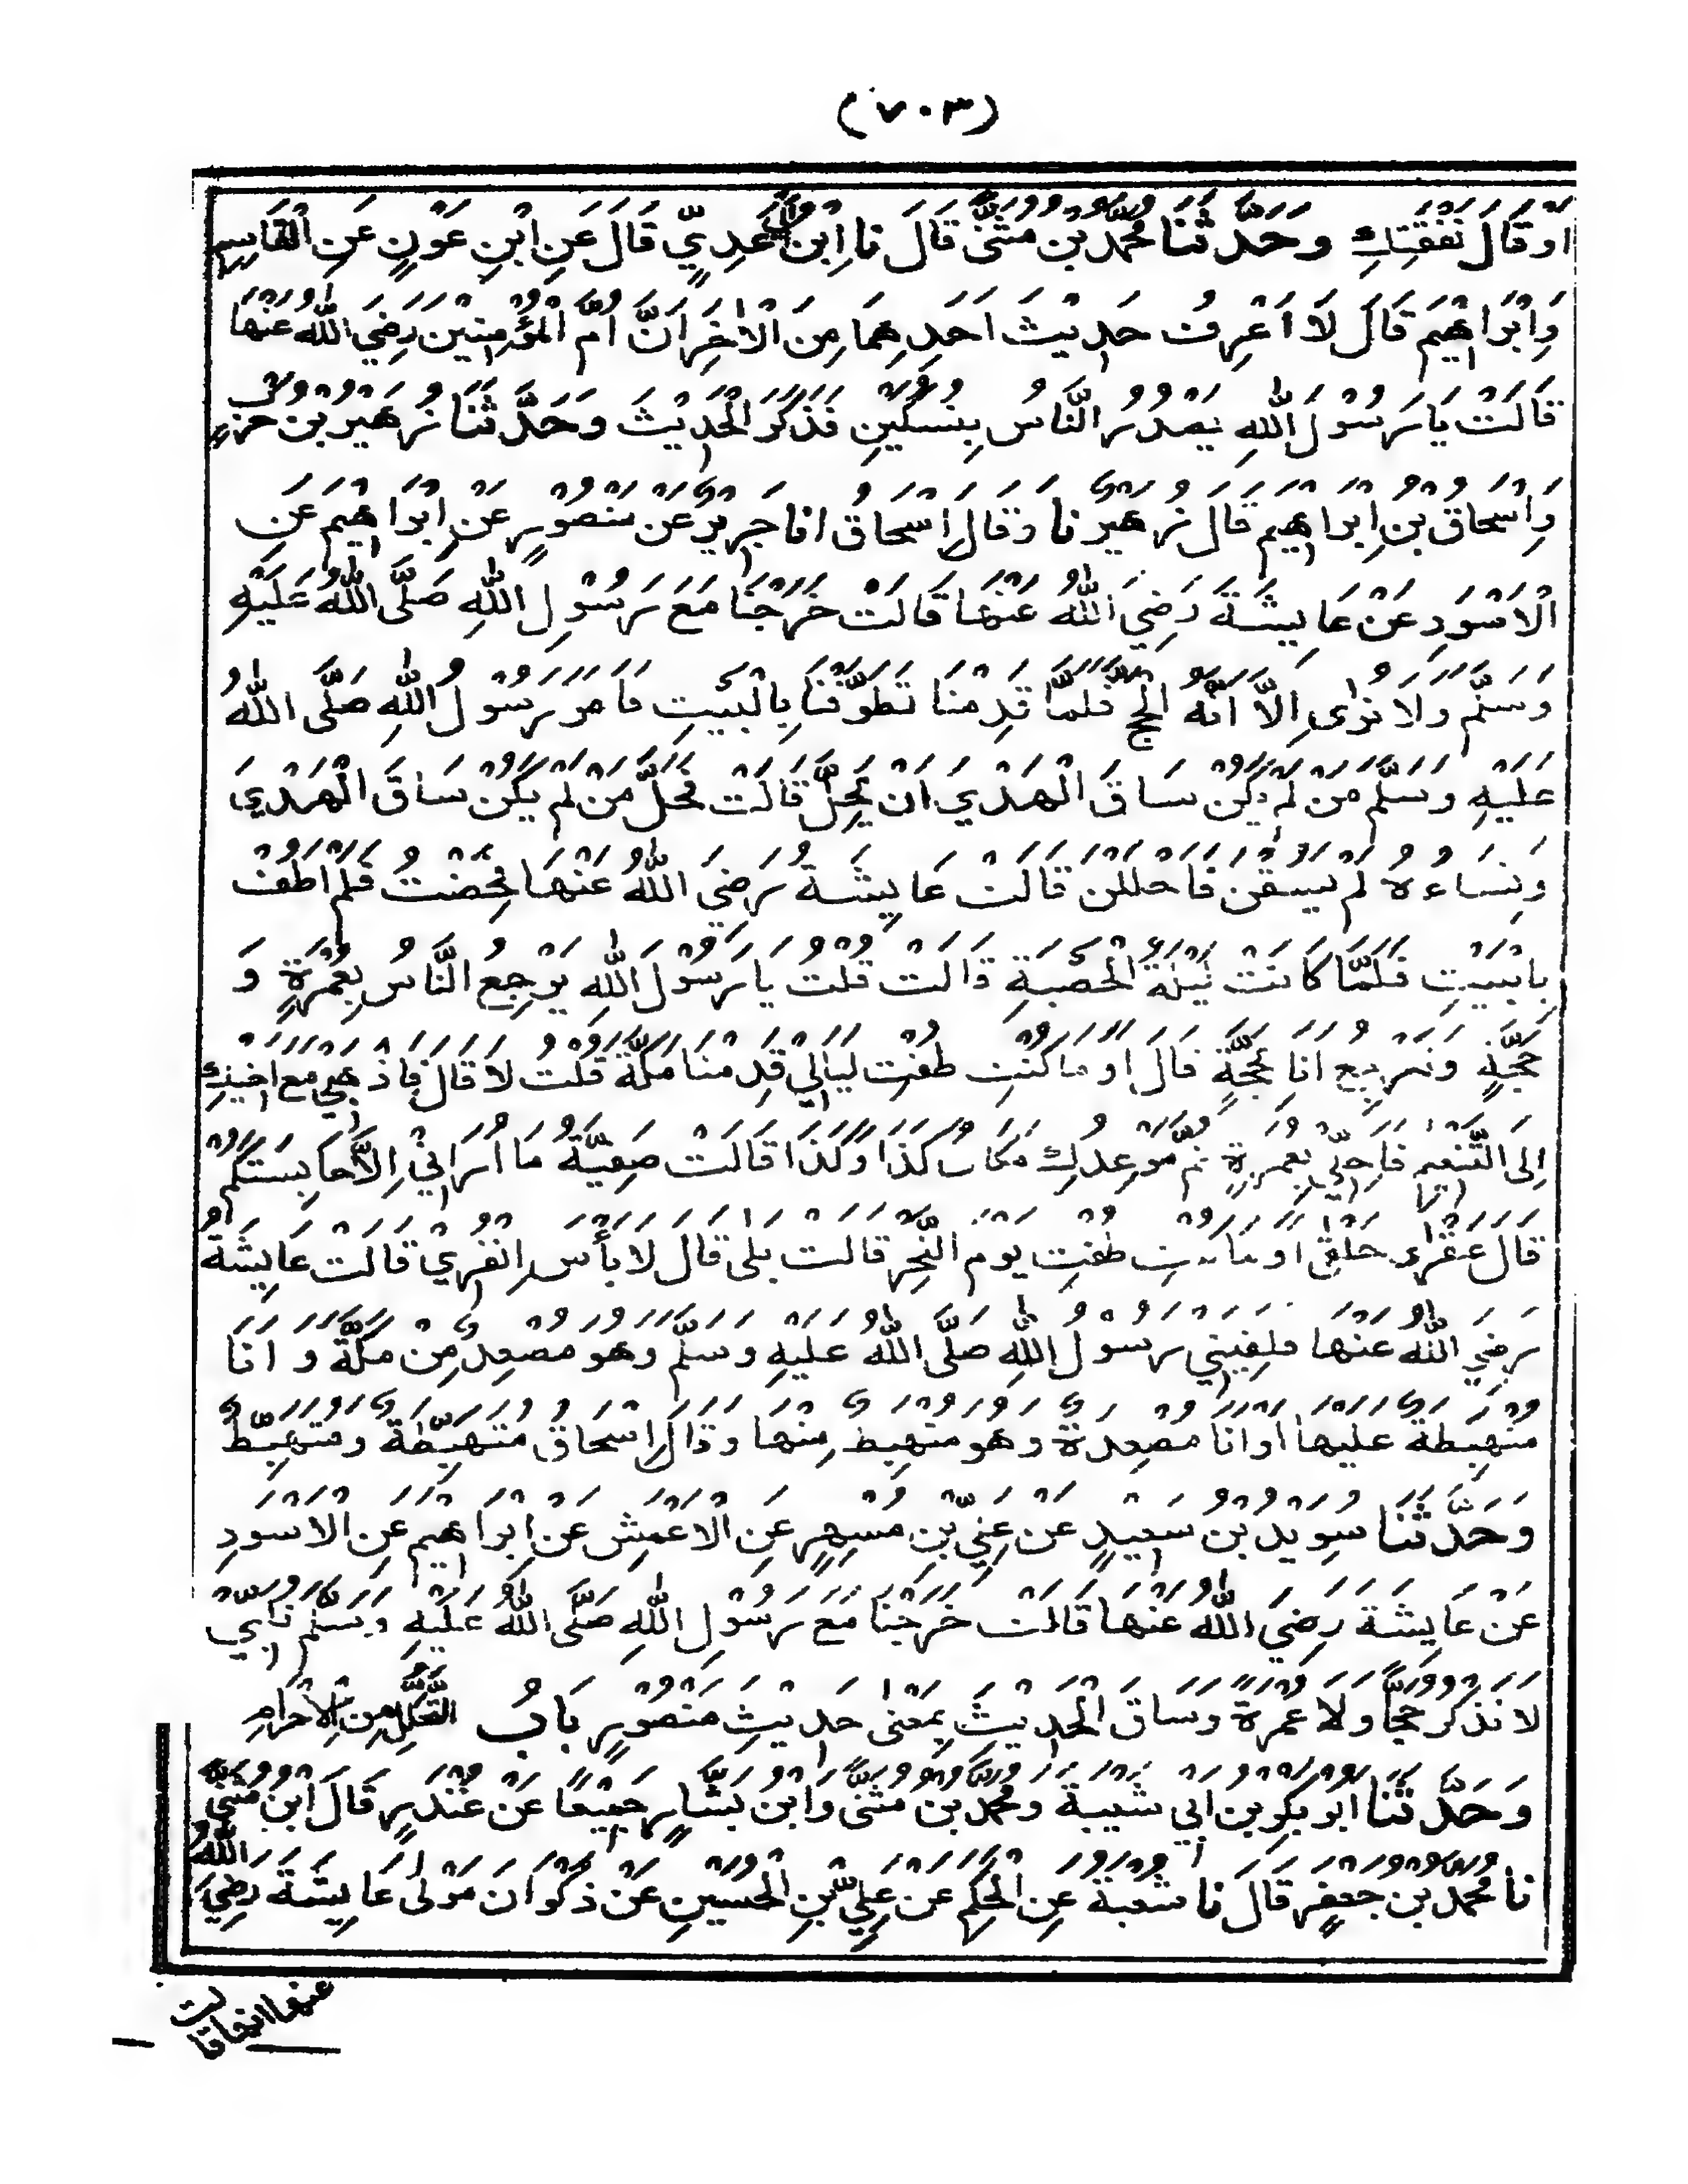 (٧٠٣)
اَوْ قَالَ نَفَقَتِكِ وَحَدَّثَنَا مُحَمَّدُ بْنُ مُثَنّٰى قَالَ نَا ابْنُ اَبِي عَدِيٍّ قَالَ عَنِ ابْنِ عَوْنٍ عَنِ الْقَاسِمِ
وَاِبْرَاهِيْمَ قَالَ لَا اَعْرِفُ حَدِيْثَ اَحَدِهِمَا مِنَ الْاٰخَرِ اَنَّ اُمَّ الْمُؤْمِنِيْنَ رَضِيَ اللّٰهُ عَنْهَا
قَالَتْ يَا رَسُوْلَ اللّٰهِ يَصْدُرُ النَّاسُ بِنُسُكَيْنِ فَذَكَرَ الْحَدِيْثَ وَحَدَّثَنَا زُهَيْرُ بْنُ حَرْبٍ
وَاِسْحَاقُ بْنُ اِبْرَاهِيْمَ قَالَ زُهَيْرٌ نَا وَقَالَ اِسْحَاقُ اَنَا جَرِيْرٌ عَنْ مَنْصُوْرٍ عَنْ اِبْرَاهِيْمَ عَنِ
الْاَسْوَدِ عَنْ عَايِشَةَ رَضِيَ اللّٰهُ عَنْهَا قَالَتْ خَرَجْنَا مَعَ رَسُوْلِ اللّٰهِ صَلَّى اللّٰهُ عَلَيْهِ
وَسَلَّمَ وَلَا نُرٰى اِلَّا اَنَّهُ الْحَجُّ فَلَمَّا قَدِمْنَا تَطَوَّفْنَا بِالْبَيْتِ فَاَمَرَ رَسُوْلُ اللّٰهِ صَلَّى اللّٰهُ
عَلَيْهِ وَسَلَّمَ مَنْ لَمْ يَكُنْ سَاقَ الْهَدْيَ اَنْ يَحِلَّ قَالَتْ فَحَلَّ مَنْ لَمْ يَكُنْ سَاقَ الْهَدْيَ
وَنِسَاءُهُ لَمْ يَسُقْنَ فَاَحْلَلْنَ قَالَتْ عَايِشَةُ رَضِيَ اللّٰهُ عَنْهَا فَحِضْتُ فَلَمْ اَطُفْ
بِالْبَيْتِ فَلَمَّا كَانَتْ لَيْلَةُ الْحَصْبَةِ قَالَتْ قُلْتُ يَا رَسُوْلَ اللّٰهِ يَرْجِعُ النَّاسُ بِعُمْرَةٍ وَ
حَجَّةٍ وَنَرْجِعُ اَنَا بِحَجَّةٍ قَالَ اَوَ مَا كُنْتِ طُفْتِ لَيَالِيَ قَدِمْنَا مَكَّةَ قُلْتُ لَا قَالَ فَاذْهَبِيْ مَعَ اَخِيْكِ
اِلَى التَّنْعِيْمِ فَاَهِلِّيْ بِعُمْرَةٍ ثُمَّ مَوْعِدُكِ مَكَانُ كَذَا وَكَذَا قَالَتْ صَفِيَّةُ مَا اُرَانِيْ اِلَّا حَابِسَتَكُمْ
قَالَ عَقْرٰى حَلْقٰى اَوَ مَا كُنْتِ طُفْتِ يَوْمَ النَّحْرِ قَالَتْ بَلٰى قَالَ لَا بَأْسَ اِنْفِرِيْ قَالَتْ عَايِشَةُ
رَضِيَ اللّٰهُ عَنْهَا فَلَقِيَنِيْ رَسُوْلُ اللّٰهِ صَلَّى اللّٰهُ عَلَيْهِ وَسَلَّمَ وَهُوَ مُصْعِدٌ مِنْ مَكَّةَ وَ اَنَا
مُنْهَبِطَةٌ عَلَيْهَا اَوْ اَنَا مُصْعِدَةٌ وَهُوَ مُنْهَبِطٌ مِنْهَا وَقَالَ اِسْحَاقُ مُتَهَبِّطَةٌ وَمُتَهَبِّطٌ
وَحَدَّثَنَا سُوَيْدُ بْنُ سَعِيْدٍ عَنْ عَلِيِّ بْنِ مُسْهِرٍ عَنِ الْاَعْمَشِ عَنْ اِبْرَاهِيْمَ عَنِ الْاَسْوَدِ
عَنْ عَايِشَةَ رَضِيَ اللّٰهُ عَنْهَا قَالَتْ خَرَجْنَا مَعَ رَسُوْلِ اللّٰهِ صَلَّى اللّٰهُ عَلَيْهِ وَسَلَّمَ نُلَبِّيْ
لَا نَذْكُرُ حَجًّا وَلَا عُمْرَةً وَسَاقَ الْحَدِيْثَ بِمَعْنٰى حَدِيْثِ مَنْصُوْرٍ بَابُ التَّحَلُّلِ مِنَ الْاِحْرَامِ
وَحَدَّثَنَا اَبُوْ بَكْرِ بْنُ اَبِيْ شَيْبَةَ وَمُحَمَّدُ بْنُ مُثَنّٰى وَابْنُ بَشَّارٍ جَمِيْعًا عَنْ غُنْدَرٍ قَالَ ابْنُ مُثَنّٰى
نَا مُحَمَّدُ بْنُ جَعْفَرٍ قَالَ نَا شُعْبَةُ عَنِ الْحَكَمِ عَنْ عَلِيِّ بْنِ الْحُسَيْنِ عَنْ ذَكْوَانَ مَوْلٰى عَايِشَةَ رَضِيَ اللّٰهُ
عنها انها قالت